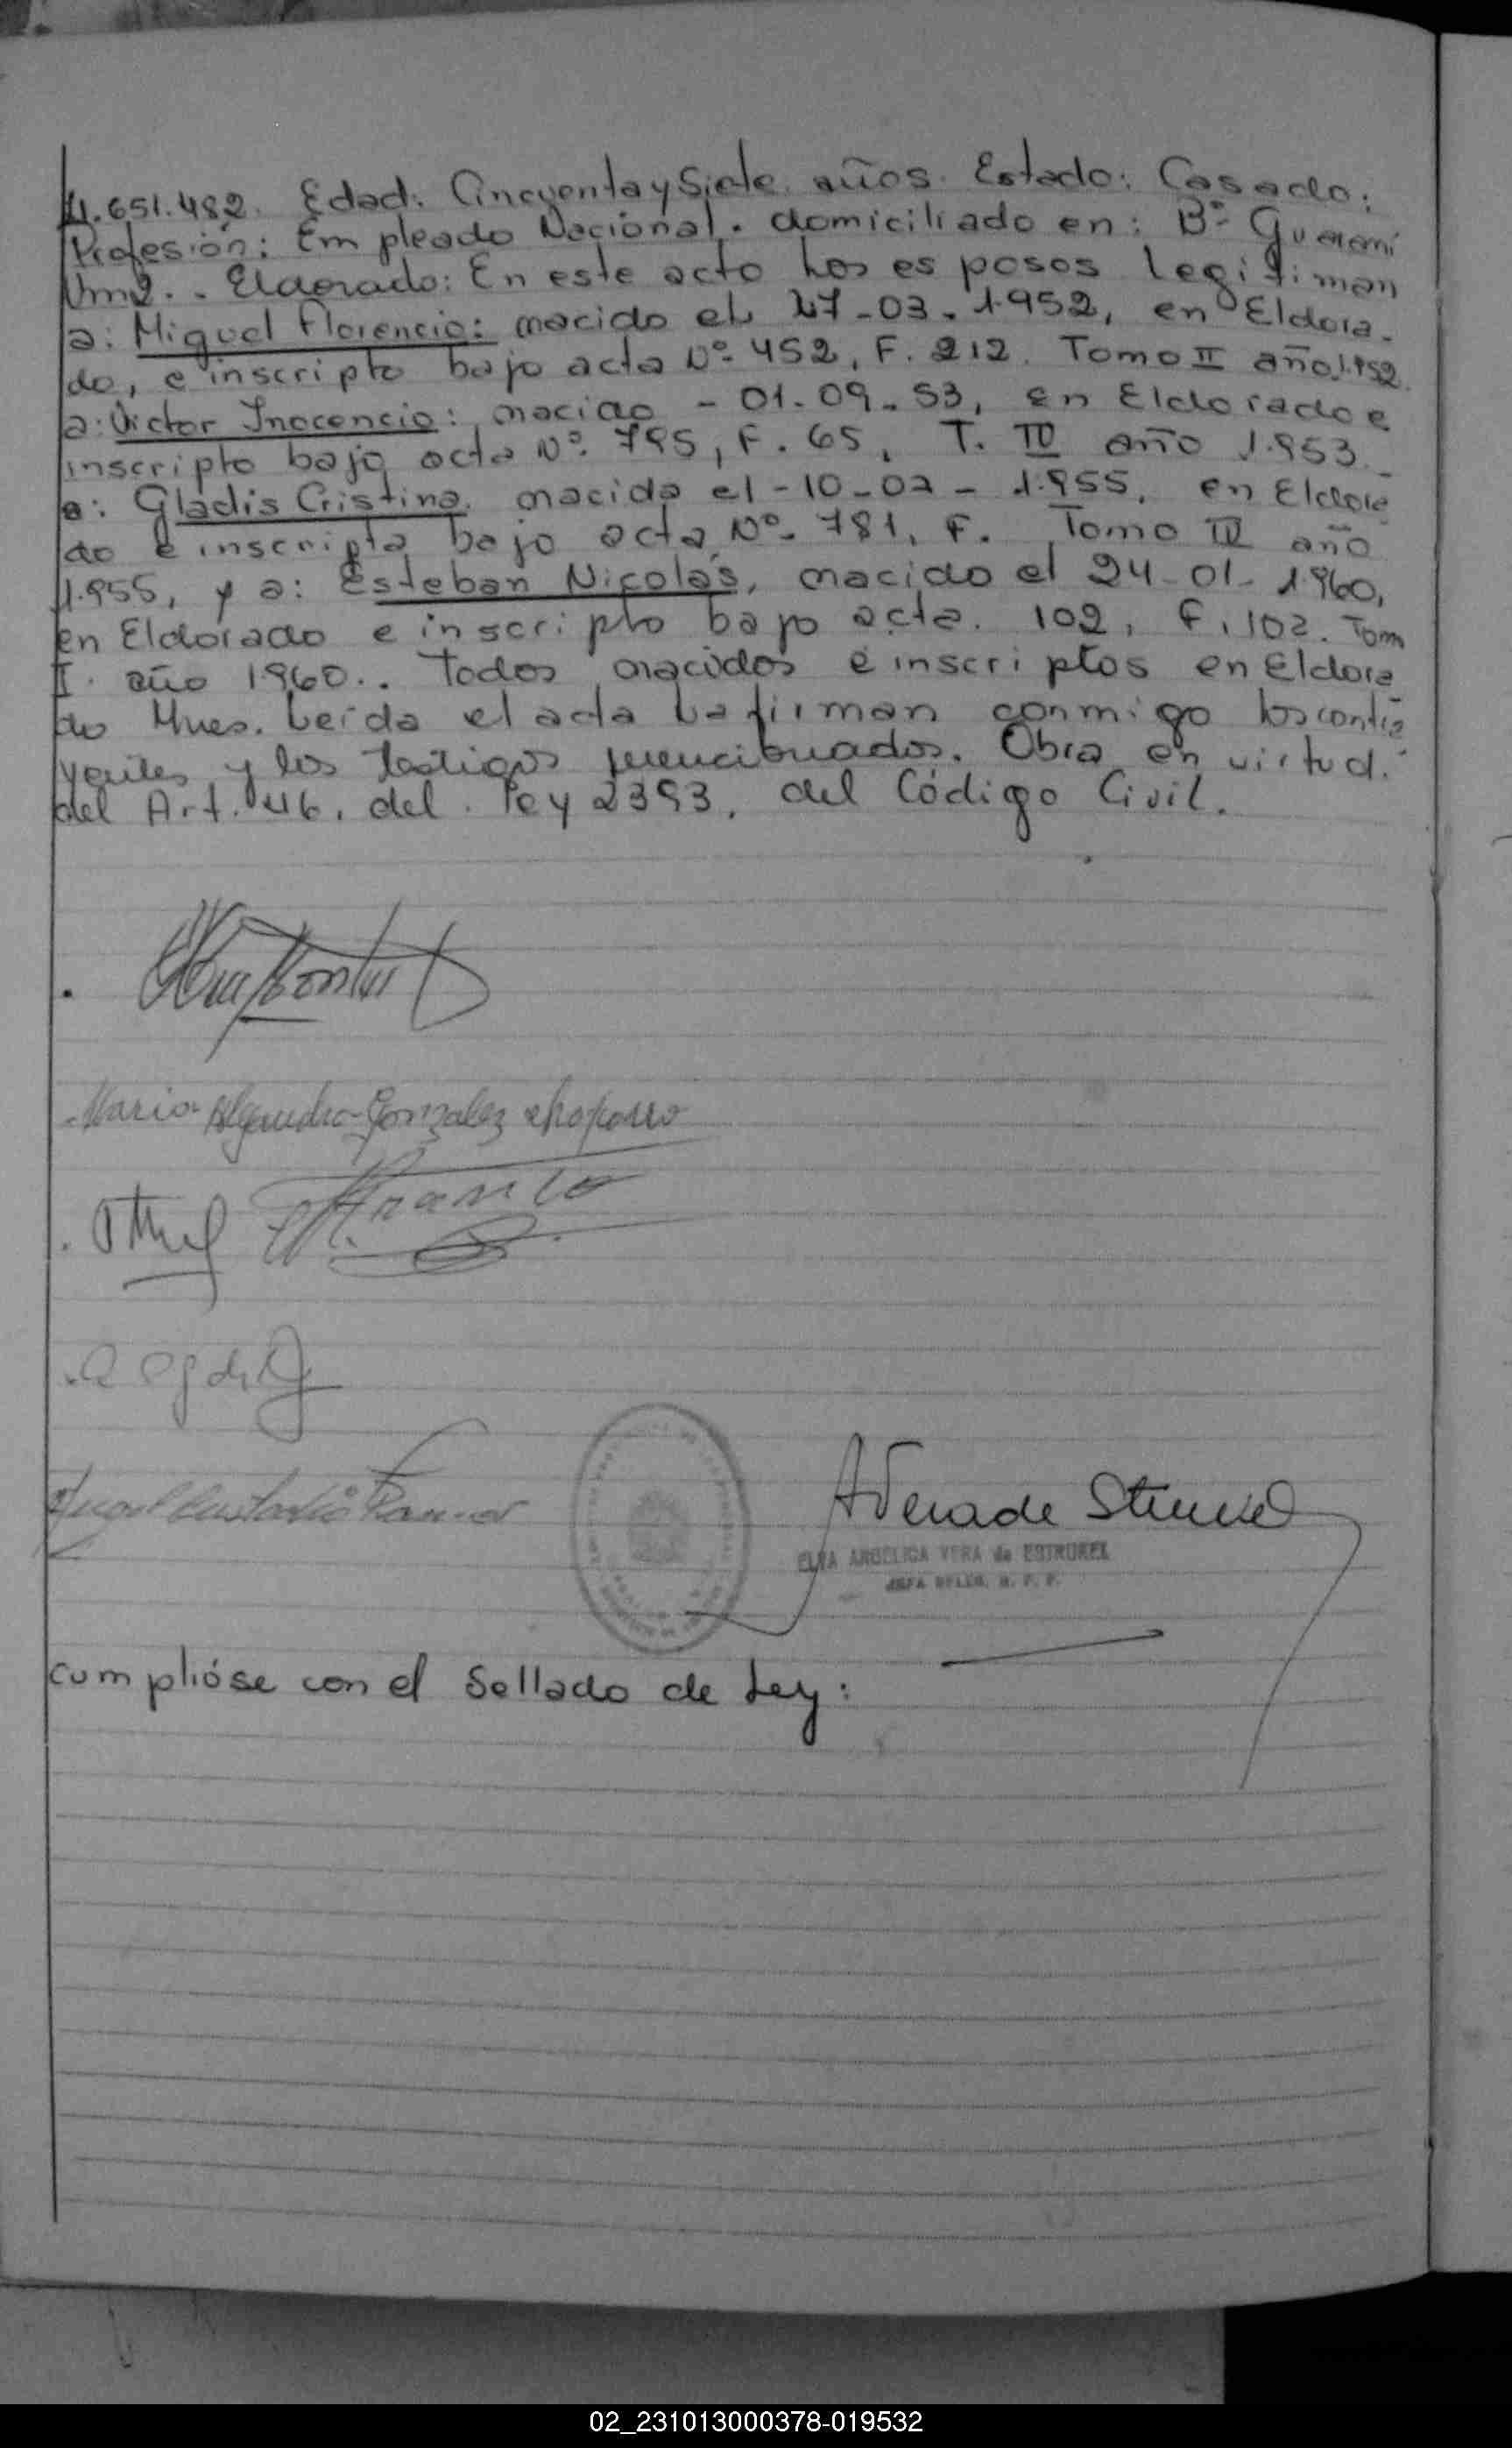 4.651.482. Edad: Cincuenta y Siete años. Estado: Casado:
Profesión: Empleado Nacional. domiciliado en: Bº Guaraní
Km2.. Eldorado: En este acto los esposos Legitiman
a: Miguel Florencio: nacido el 27-03-1.952, en Eldora-
do, e inscripto bajo acta Nº 452, F. 212. Tomo II año 1.952.
a: Victor Inocencio: nacido - 01-09-53, en Eldorado e
inscripto bajo acta Nº 795, F. 65, T. IV año 1.953.
a: Gladis Cristina, nacida el - 10-02 - 1.955, en Eldora
do e inscripta bajo acta Nº 781, F. Tomo IV año
1.955, y a: Esteban Nicolás, nacido el 24-01-1.960,
en Eldorado e inscripto bajo acta. 102, F. 102. Tom
I. año 1960.. todos nacidos e inscriptos en Eldora
do Mnes. Leída el acta la firman conmigo los contra
yentes y los testigos mencionados. Obra en virtud.
del Art. 46. del. Ley 2393, del Código Civil.
Maria Alejandra Gonzalez chaparro
Franco
Angel Eustacio Ramos
AVera de Struckel
ELVA ANGELICA VERA de ESTRUKEL
JEFA DELEG. R. P. P.
cumplióse con el Sellado de Ley:
02_231013000378-019532